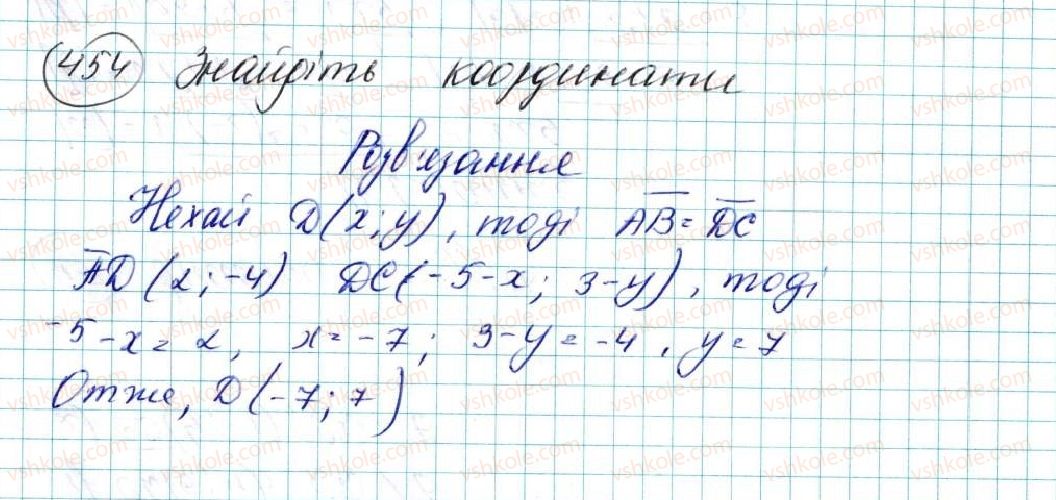 454 Знайдіть координати
Розв'язання
Нехай D(x; y), тоді AB = DC
AD (2; -4) DC(-5-x; 3-y), тоді
-5-x = 2, x = -7; 3-y = -4, y = 7
Отже, D(-7; 7)
vshkole.com